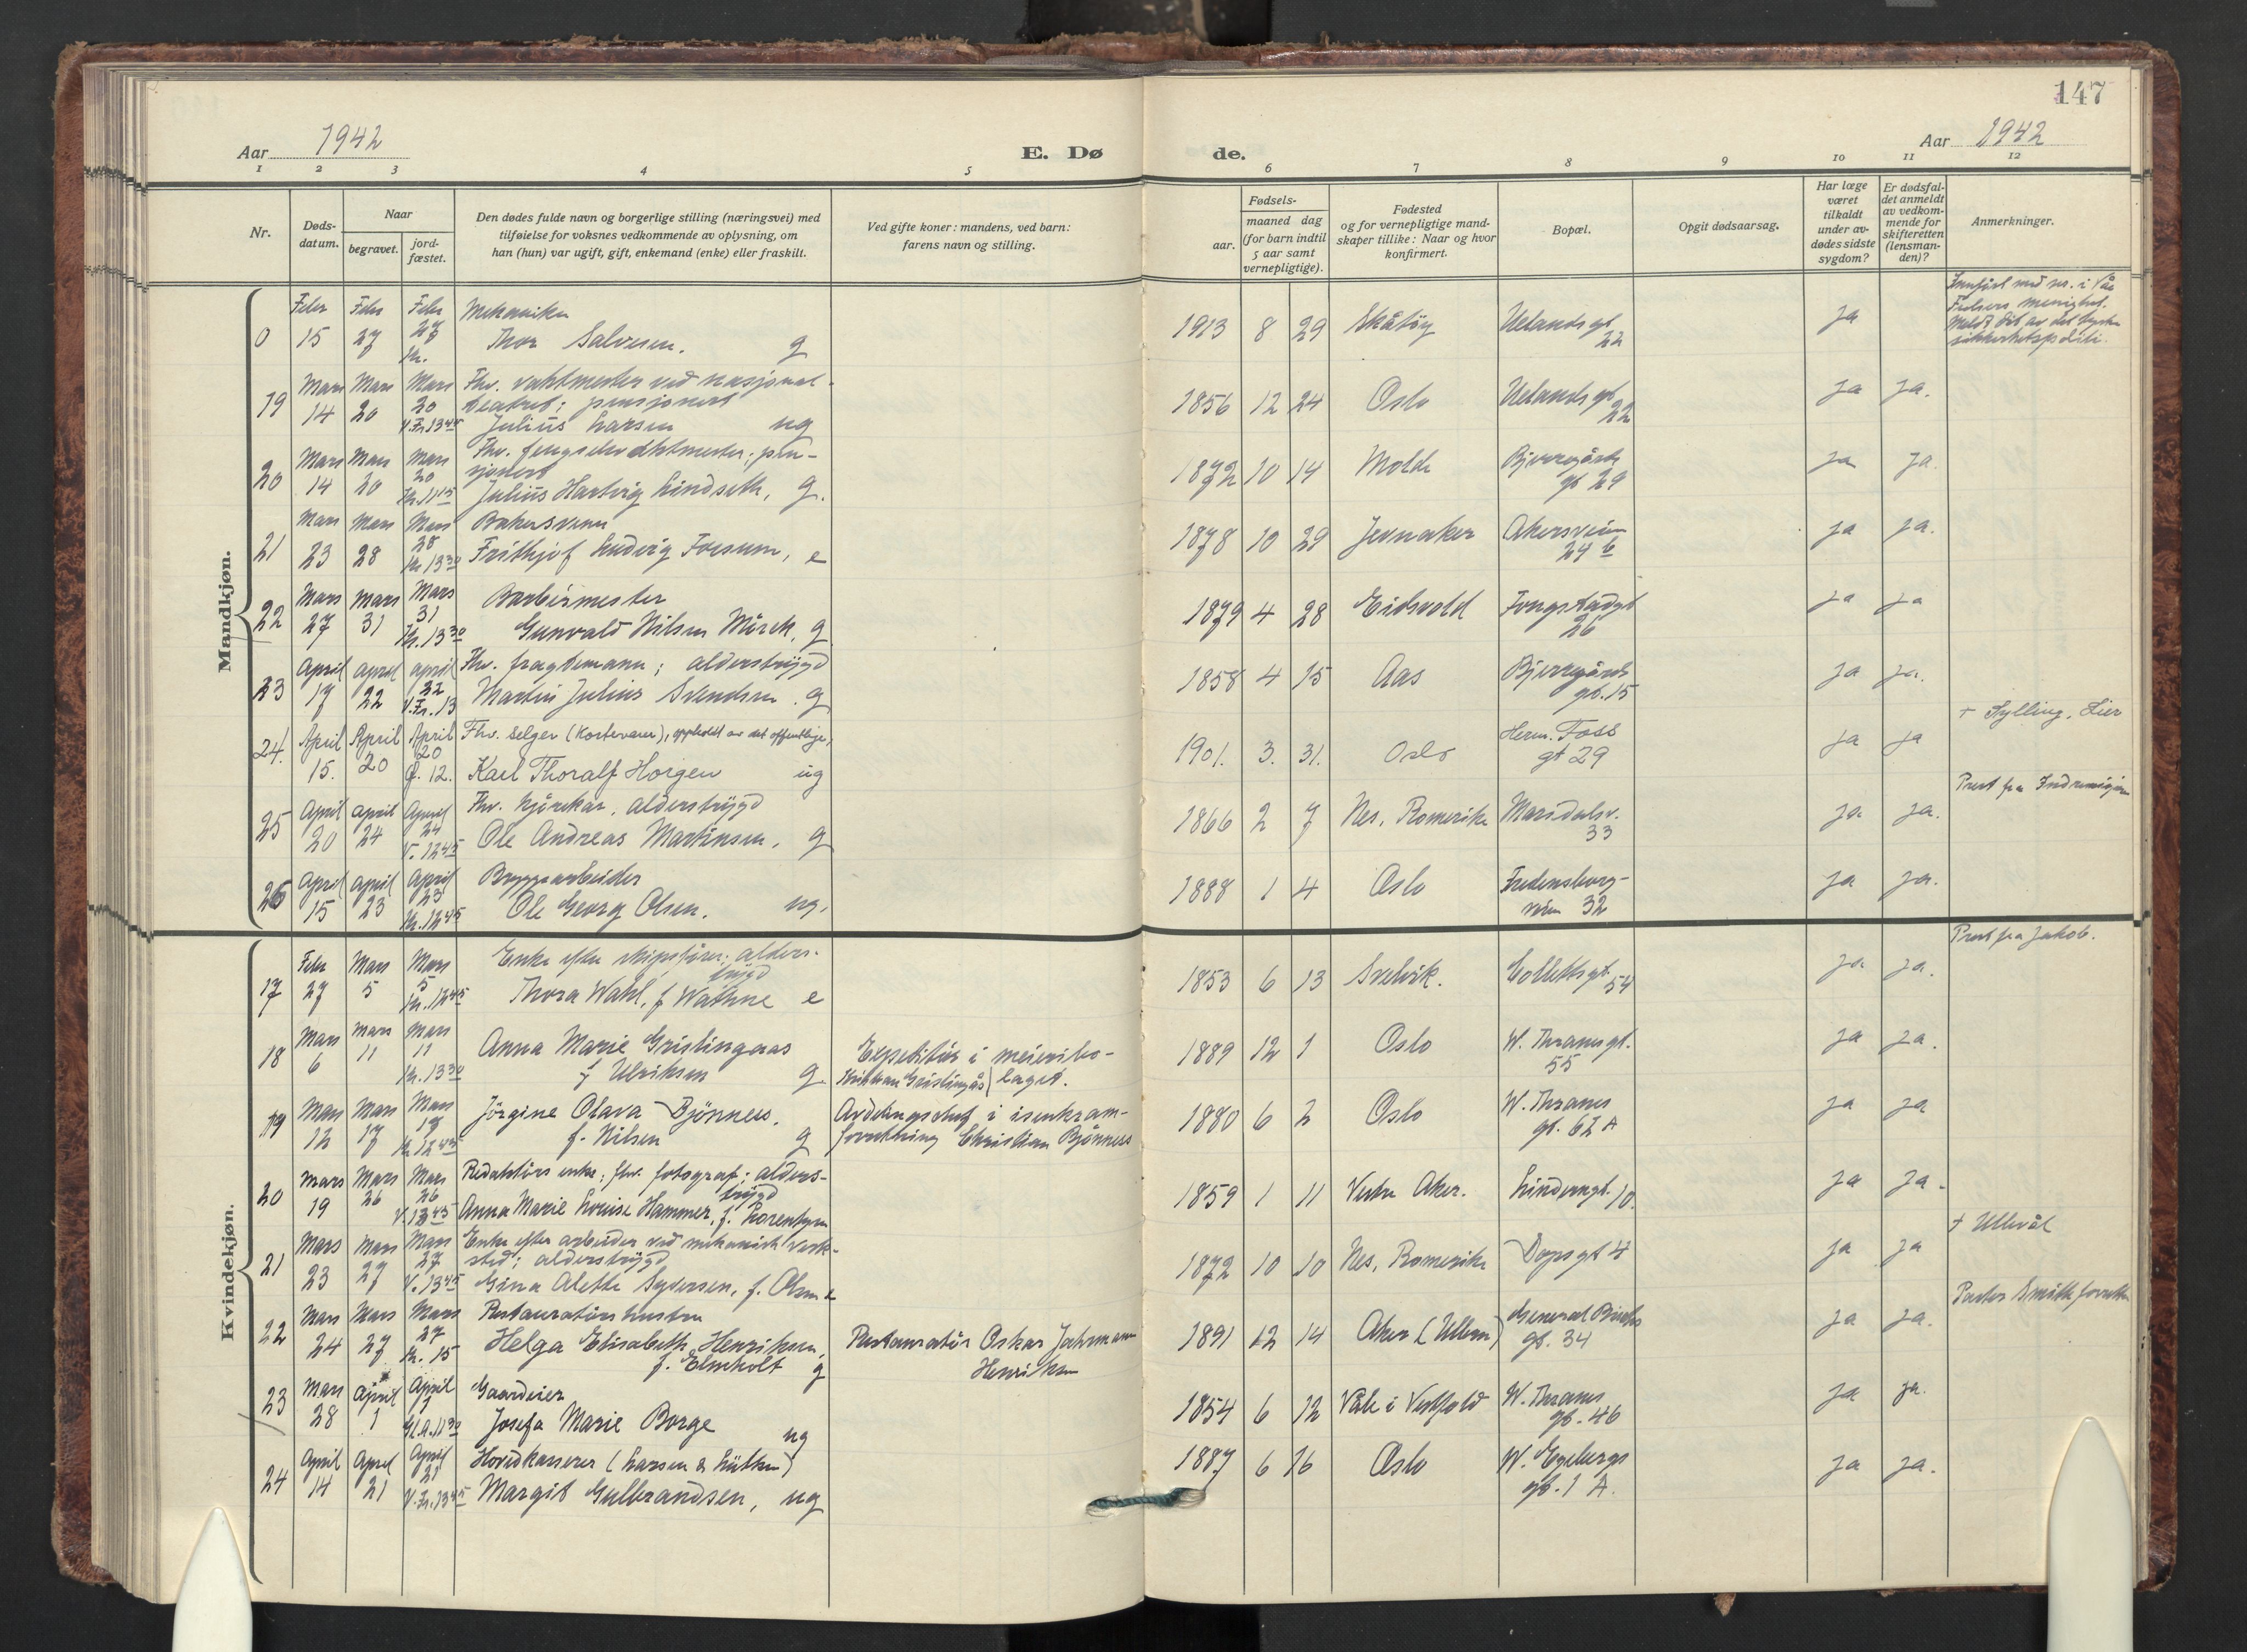 147
Aar 1942
E. Dø
de.
Aar 1942
1 2 3 4 5 6 7 8 9 10 11 12
Nr.
Døds-
datum.
Naar
begravet.
jord-
fæstet.
Den dødes fulde navn og borgerlige stilling (næringsvei) med
tilføielse for voksnes vedkommende av oplysning, om
han (hun) var ugift, gift, enkemand (enke) eller fraskilt.
Ved gifte koner: mandens, ved barn:
farens navn og stilling.
Fødsels-
aar.
maaned dag
(for barn indtil
5 aar samt
vernepligtige).
Fødested
og for vernepligtige mand-
skaper tillike: Naar og hvor
konfirmert.
Bopæl.
Opgit dødsaarsag.
Har læge
været
tilkaldt
under av-
dødes sidste
sygdom?
Er dødsfal-
det anmeldt
av vedkom-
mende for
skifteretten
(lensman-
den)?
Anmerkninger.
Mandkjøn.
0 Febr 15 Febr 27 Febr 27 Kr.
Mekaniker
Thor Salvesen. g
1913 8 29 Skåtøy Uelandsgt 22 ja
Innført med nr. i Vår
Frelsers menighet.
Meldt dit av det tyske
sikkerhetspoliti.
19 Mars 14 Mars 20 Mars 20 V.Kr. 13 45
Fhv. vaktmester ved nasjonal-
teatret; pensjonert
Julius Larsen ug
1856 12 24 Oslo Uelandsgt 22 ja ja.
20 Mars 14 Mars 20 Mars 20 Kr. 11 15
Fhv. fengselsvaktmester, pen-
sjonert
Julius Hartvig Lindseth, g.
1872 10 14 Molde Bjerregårds gt 29 ja ja.
21 Mars 23 Mars 28 Mars 28 Kr 13 30
Bakersvenn
Frithjof Ludvig Fossum, e
1878 10 29 Jevnaker Akersveien 24 b ja ja.
22 Mars 27 Mars 31 Mars 31 Kr. 13 30
Barbermester
Gunvald Nilsen Mörck, g
1879 4 28 Eidsvold Fougstadgt 26 ja ja
23 April 17 April 22 April 22 V.Kr. 13
Fhv. fragtemann; alderstrygd
Martin Julius Svendsen. g
1858 4 15 Aas Bjerregårds gt. 15 ja ja.
24. April 15. April 20 April 20 12.
Fhv. selger (Kortevarer), oppholdt av det offentlige,
Karl Thoralf Horgen ug
1901. 3. 31. Oslo Herm. Foss gt 29 ja ja
+ Sylling, Lier
25 April 20 April 24 April 24 V. 12 45
Fhv. kjørekar, alderstrygd
Ole Andreas Martinsen, g
1866 2 7 Nes, Romerike Maridalsv. 33 ja ja.
Prest fra Indremisjon
26 April 15 April 23 April 23 Kr. 12 45
Bryggearbeider
Ole Georg Olsen. ug.
1888 1 4 Oslo Fredensborg-
veien 32 ja ja.
Kvindekjøn.
17 Febr 27 Mars 5 Mars 5 Kr. 12 45
Enke efter skipsfører; alders-
trygd
Thora Wahl, f Wathne e
1853 6 13 Svelvik. Collettsgt. 54 ja ja.
Prest fra Jakob.
18 Mars 6 Mars 11 Mars 11 Kr. 13 30
Anna Marie Gristingaas
f Ulriksen g.
Expeditør i meieribo-
laget.
Kristian Gristingås
1889 12 1 Oslo W. Thranesgt. 55 ja ja.
19 Mars 12 Mars 17 Mars 17 Kr 12 45
Jörgine Olava Bjönness.
f. Nilsen g
Avdelingschef i isenkram-
forretning Christian Bjönness
1880 6 2 Oslo W. Thranes gt. 62 A ja ja
20 Mars 19 Mars 26 Mars 26 V. 13 45
Redaktörs enke; fhv. fotograf; alders-
trygd
Anna Marie Louise Hammer, f. Lorentzen
1859 1 11 Vestre Aker. Linderngt. 10. ja ja.
21 Mars 23 Mars 27 Mars 27 V. 13 45
Enke efter arbeider ved mekanisk verk-
sted; alderstrygd
Gina Alette Syversen, f. Olsen e
1872 10 10 Nes, Romerike Dopsgt 4 ja ja
+ Ullevål
22 Mars 24 Mars 27 Mars 27 Kr. 15
Restauratörs hustru
Helga Elisabeth Henriksen,
f. Elmholt g
Restauratör Oskar Jahrmann
Henriksen
1891 12 14 Aker (Ullern) General Birchs gt. 34 ja ja.
Pastor Smith forrettet
23 Mars 28 April 1 April 1 Gl.A. 11 30
Gaardeier
Josefa Marie Borge ug
1854 6 12 Våle i Vestfold W. Thranes gt. 46 ja ja.
24 April 14 April 21 April 21 V.Kr. 13 45
Hovedkasserer (Larsen & Lütken)
Margit Gulbrandsen, ug
1887 6 16 Oslo W. Egebergs gt. 1 A. ja ja.